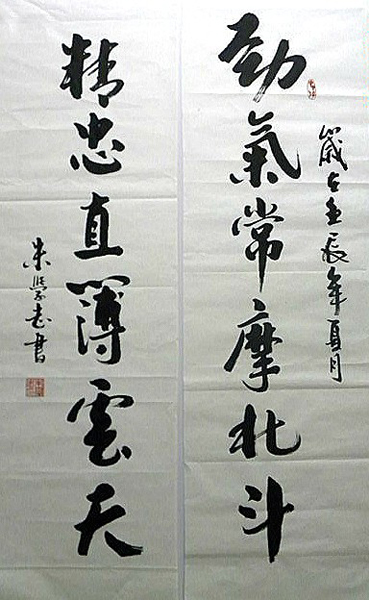 歲在壬辰年夏月
勁氣常摩北斗
精忠直薄雲天
朱學志書